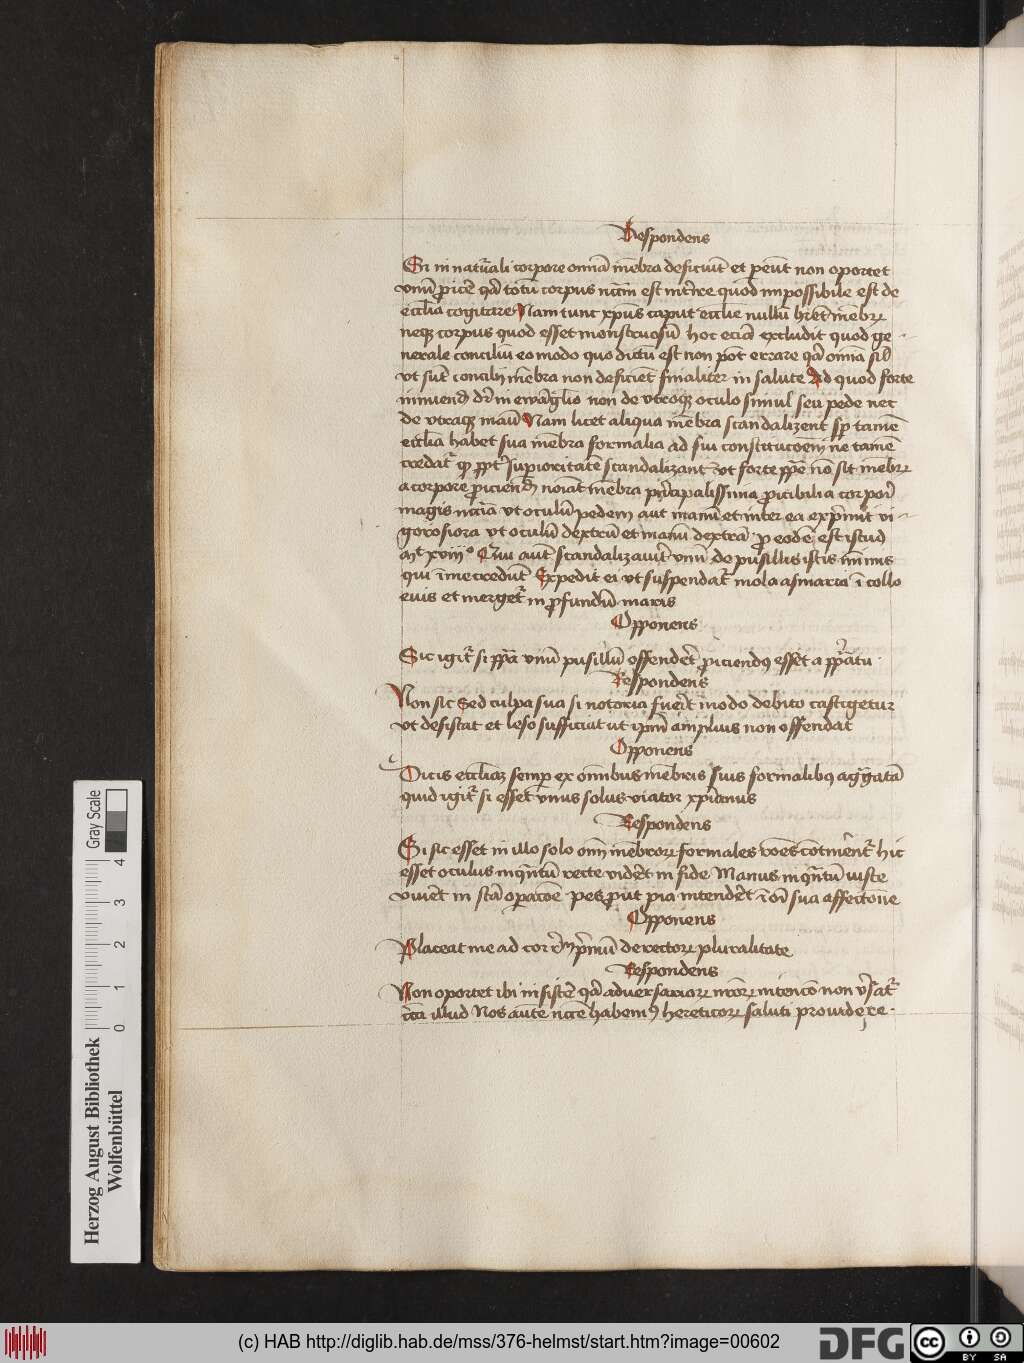 Respondens
Si in naturali corpore omnia membra deficiunt et pereunt non oportet
unum proicere quia totum corpus est interire quod impossibile est de
ecclesia cogitare Nam tunc xpus caput ecclesie nullum haberet membrum
neque corpus quod esset monstruosum hoc eciam excludit quod ge-
nerale concilium eo modo quo dictum est non potest errare quia omnia simul
ut sunt concilii membra non deficient finaliter in salute Ad quod forte
innuendum dicitur in ewangelio non de utroque oculo simul seu pede nec
de utraque manu Nam licet aliqua membra scandalizent semper tamen
ecclesia habet sua membra formalia ad sui constitucionem ne tamen
credatur quod propter superioritatem scandalizant ut forte papa non sit membrum
a corpore proiciendum nominat membra principalissima proicibilia corpori
magis necessaria ut oculum pedem aut manum et inter ea exprimit vi-
gorosiora ut oculum dextrum et manum dextram pro eodem est istud
mt xviij° Qui autem scandalizaverit unum de pusillis istis minimis
qui in me credunt Expedit ei ut suspendatur mola asinaria in collo
eius et mergetur in profundum maris
Opponens
Sic igitur si papa unum pusillum offenderet proiciendus esset a papatu
Respondens
Non sic Sed culpa sua si notoria fuerit modo debito castigetur
ut desistat et leso sufficiat ut ipsum amplius non offendat
Opponens
Dicis ecclesiam semper ex omnibus membris suis formalibus aggregatam
quid igitur si esset unus solus viator xpianus
Respondens
Si sic esset in illo solo omnium membrorum formales raciones continerentur hic
esset oculus inquantum recte videret in fide Manus inquantum iuste
viveret in sancta operacione pes prout pia intenderet in omni sua affectione
Opponens
Placeat me ad primum de rectorum pluralitate
Respondens
Non oportet ibi insistere quia adversariorum nostrorum intencio non versatur
circa illud Nos autem necesse habemus hereticorum saluti providere
Herzog August Bibliothek
Wolfenbüttel
Gray Scale
0 1 2 3 4
(c) HAB http://diglib.hab.de/mss/376-helmst/start.htm?image=00602
DFG
cc BY SA